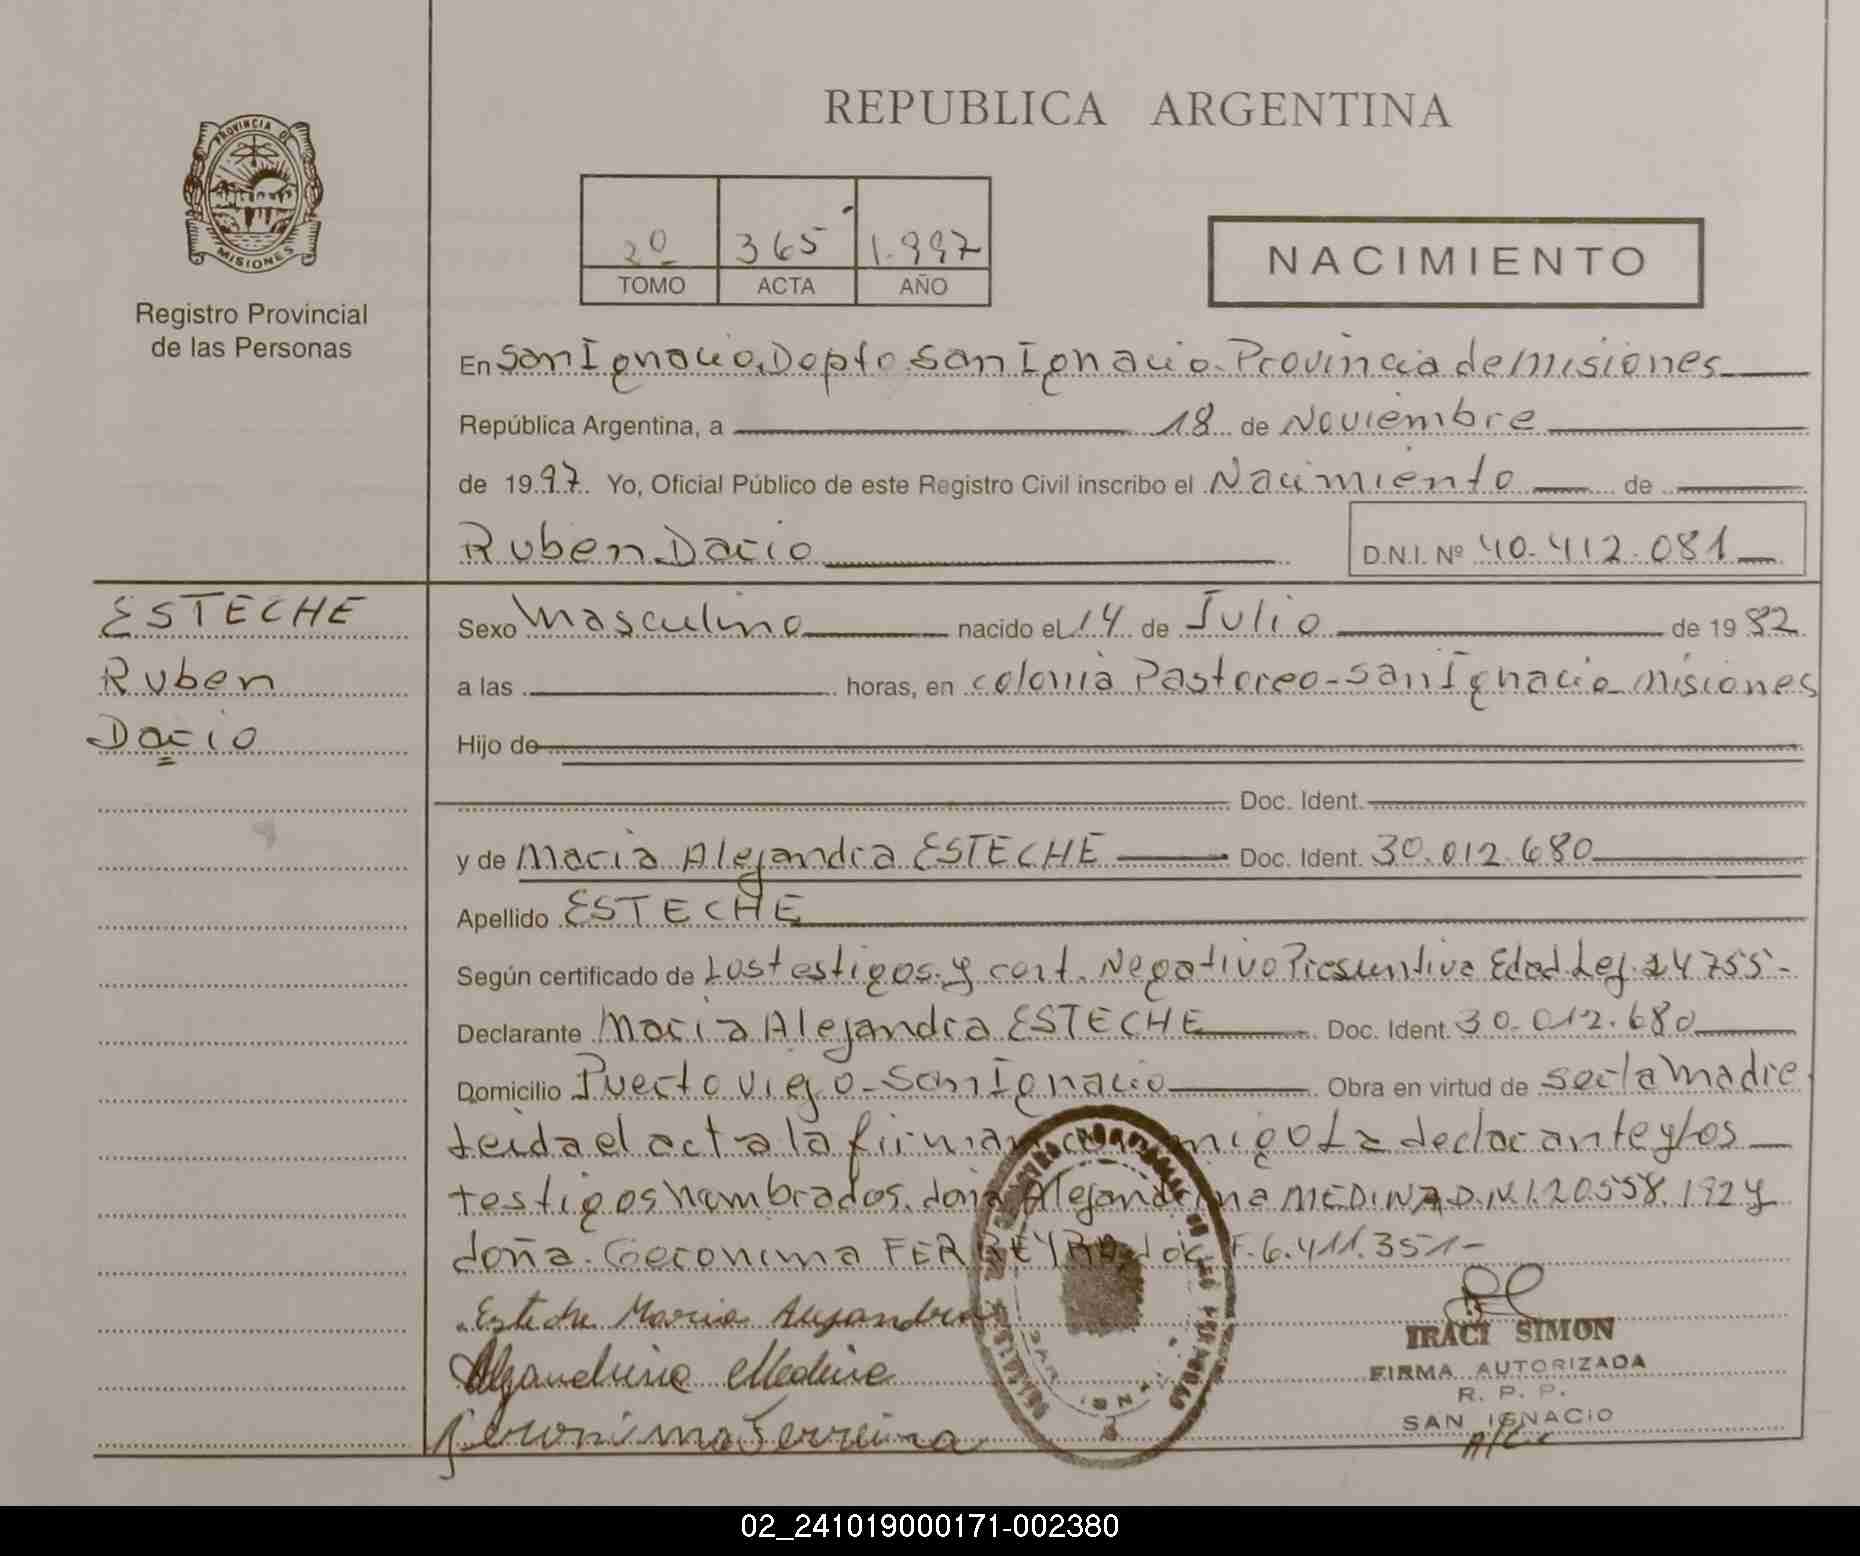 REPUBLICA ARGENTINA
PROVINCIA DE
MISIONES
Registro Provincial
de las Personas
2º 365 1.997
TOMO ACTA AÑO
NACIMIENTO
En San Ignacio, Depto San Ignacio. Provincia de Misiones
República Argentina, a 18 de Noviembre
de 1997. Yo, Oficial Público de este Registro Civil inscribo el Nacimiento de
Ruben Dario D.N.I. Nº 40.412.081
ESTECHE
Ruben
Dario
Sexo Masculino nacido el 14 de Julio de 1982
a las horas, en colonia Pastoreo - San Ignacio Misiones
Hijo de
Doc. Ident.
y de Maria Alejandra ESTECHE Doc. Ident. 30.012.680
Apellido ESTECHE
Según certificado de Los testigos y cert. Negativo Presuntiva Edad Ley 14755-
Declarante Maria Alejandra ESTECHE Doc. Ident. 30.012.680
Domicilio Puerto Viejo - San Ignacio Obra en virtud de ser la Madre.
Leida el acta la firman conmigo La declarante y los
testigos nombrados. doña Alejandrina MEDINA D.N.I. 20.558.192 y
doña. Geronima FERREYRA doc F. 6.411.351-
Esteche Maria Alejandra
Alejandrina Medina
Jeronima Ferreira
IRACI SIMON
FIRMA AUTORIZADA
R. P. P.
SAN IGNACIO
02_241019000171-002380